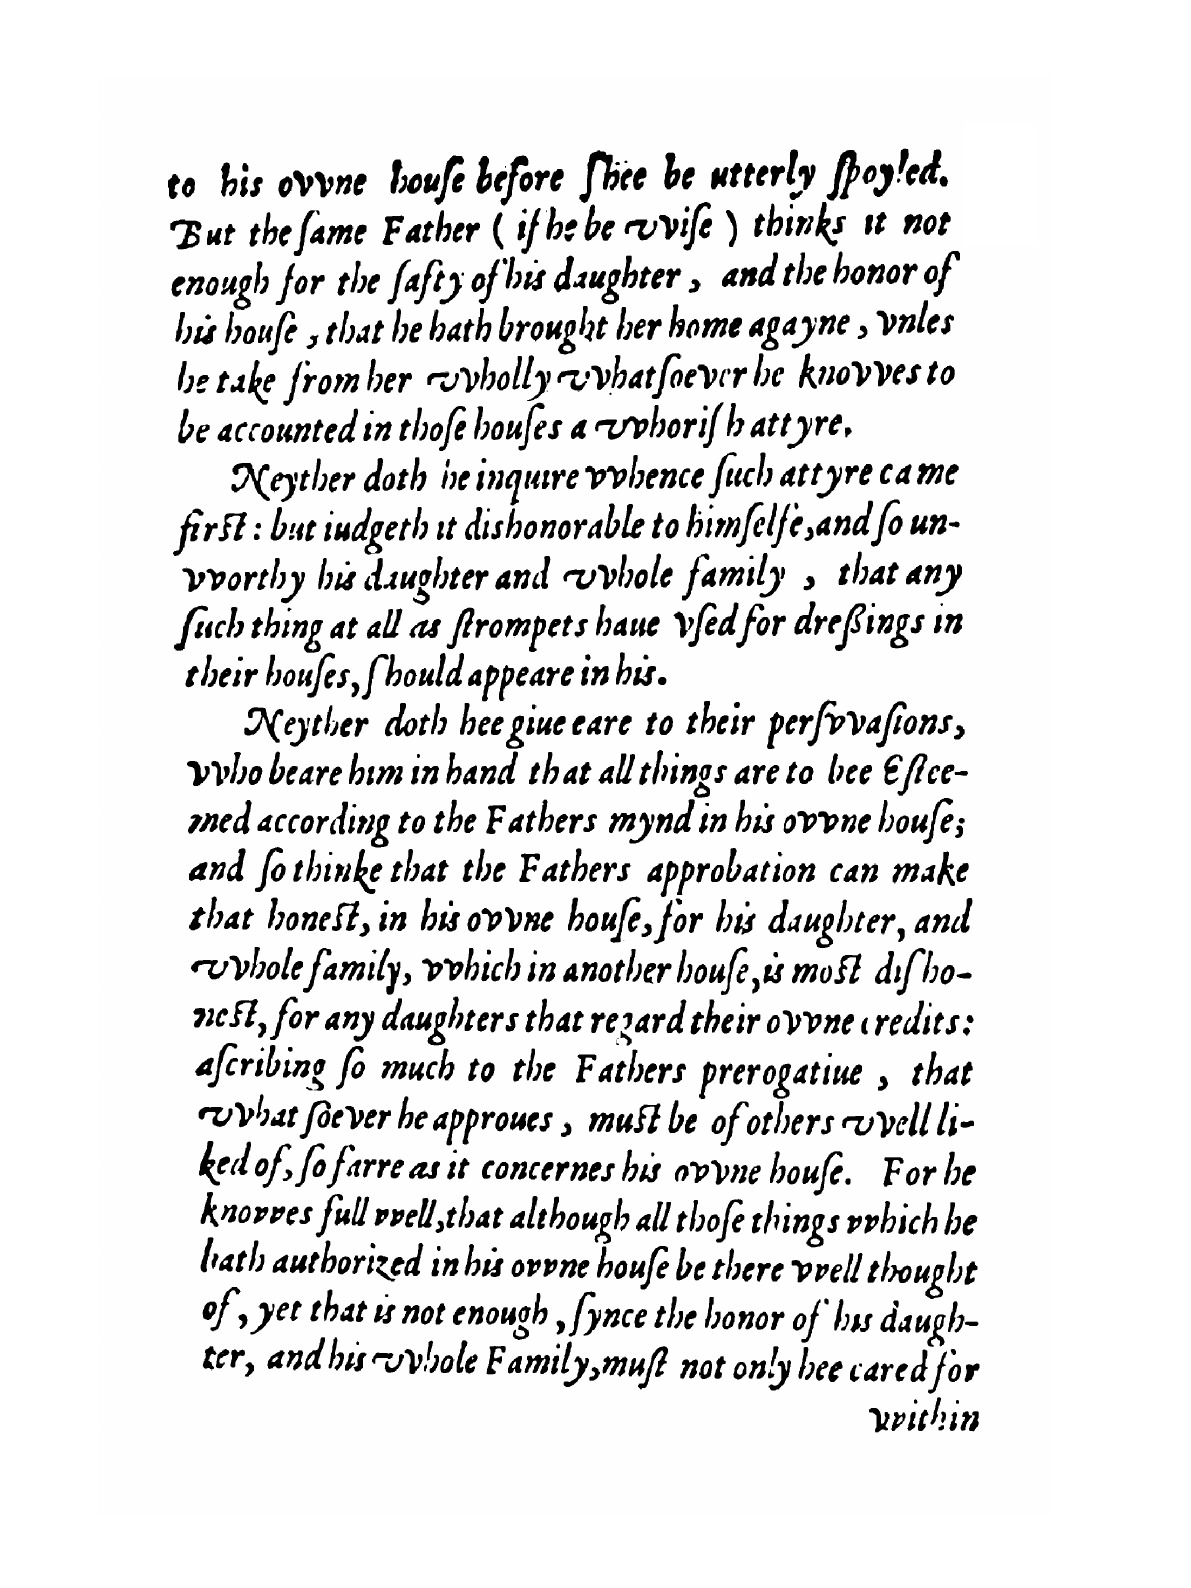 to his ovvne houſe before ſhee be utterly ſpoyled.
But the ſame Father ( if he be vviſe ) thinks it not
enough for the ſafty of his daughter , and the honor of
his houſe , that he hath brought her home agayne , vnles
he take from her vvholly vvhatſoever he knovves to
be accounted in thoſe houſes a vvhoriſh attyre.
Neyther doth he inquire vvhence ſuch attyre came
firſt : but iudgeth it dishonorable to himſelfe,and ſo un-
vvorthy his daughter and vvhole family , that any
ſuch thing at all as ſtrompets haue vſed for dreſsings in
their houſes, ſhould appeare in his.
Neyther doth hee giue eare to their perſvvaſions,
vvho beare him in hand that all things are to bee Eſtee-
med according to the Fathers mynd in his ovvne houſe;
and ſo thinke that the Fathers approbation can make
that honeſt, in his ovvne houſe, for his daughter, and
vvhole family, vvhich in another houſe, is moſt diſho-
neſt, for any daughters that regard their ovvne credits:
aſcribing ſo much to the Fathers prerogatiue , that
vvhatſoever he approues , muſt be of others vvell li-
ked of, ſo farre as it concernes his ovvne houſe. For he
knovves full vvell,that although all thoſe things vvhich he
hath authorized in his ovvne houſe be there vvell thought
of , yet that is not enough , ſynce the honor of his daugh-
ter, and his vvhole Family,muſt not only bee cared for
vvithin